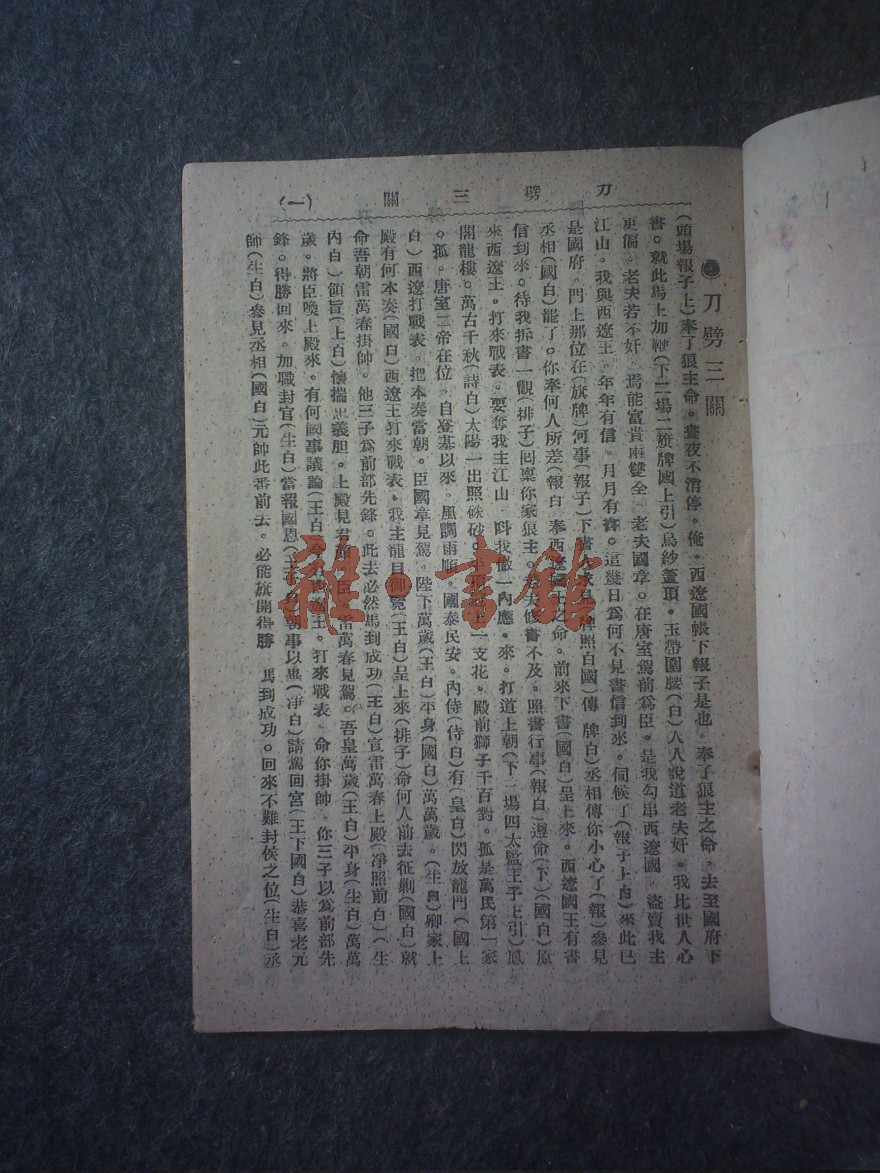 刀劈三關
(一)
刀劈三關
(頭場報子上)奉了狼主命。晝夜不消停。俺。西遼國帳下報子是也。奉了狼主之命。去至國府下
書。就此馬上加鞭(下二場二旗牌國上引)烏紗蓋頂。玉帶圍腰(白)人人說道老夫奸。我比世人心
更偏。老夫若不奸 焉能富貴兩雙全 老夫國章。在唐室駕前爲臣。是我勾串西遼國 盜賣我主
江山。我與西遼王。年年有信。月月有書。這幾日爲何不見書信到來。伺候了(報子上白)來此已
是國府。門上那位在(旗牌)何事(報子)下書人 照白國)傳 牌白)丞相傳你小心了(報)參見
丞相(國白)罷了。你奉何人所差(報白 奉西遼 之命。前來下書(國白)呈上來。西遼國王有書
信到來。待我拆書一觀(排子)回稟你家狼主。 修書不及。照書行事(報白)遵命(下)(國白)原
來西遼王。打來戰表。要奪我主江山 叫我做一內應。來。打道上朝(下三場四太監王子上引)鳳
閣龍樓。萬古千秋(詩白)太陽一出照 上一支花。殿前獅子千百對。孤是萬民第一家
。孤。唐室二帝在位。自登基以來。風調雨順。國泰民安。內侍(侍白)有(皇白)閃放龍門(國上
白)西遼打戰表。把本奏當朝。臣國章見駕。陛下萬歲(王白)平身(國白)萬萬歲。(生白)卿家上
殿有何本奏(國白)西遼王打來戰表。我主龍目御覽(王白)呈上來(排子)命何人前去征剿(國白)就
命吾朝雷萬春掛帥。他三子爲前部先鋒。此去必然馬到成功(王白)宣雷萬春上殿(凈照前白)(生
內白)領旨(上白)懷揣忠義胆。上殿見君 臣 雷萬春見駕。吾皇萬歲(王白)平身(生白)萬萬
歲。將臣喚上殿來。有何國事議論(王白 打來戰表 命你掛帥。你三子以爲前部先
鋒。得勝回來。加職封官(生白)當報國恩(王 朝事以畢(凈白)請駕回宮(王下國白)恭喜老元
帥(生白)參見丞相(國白)元帥此番前去。必能旗開得勝 馬到成功。回來不難封侯之位(生白)丞
雜·書館